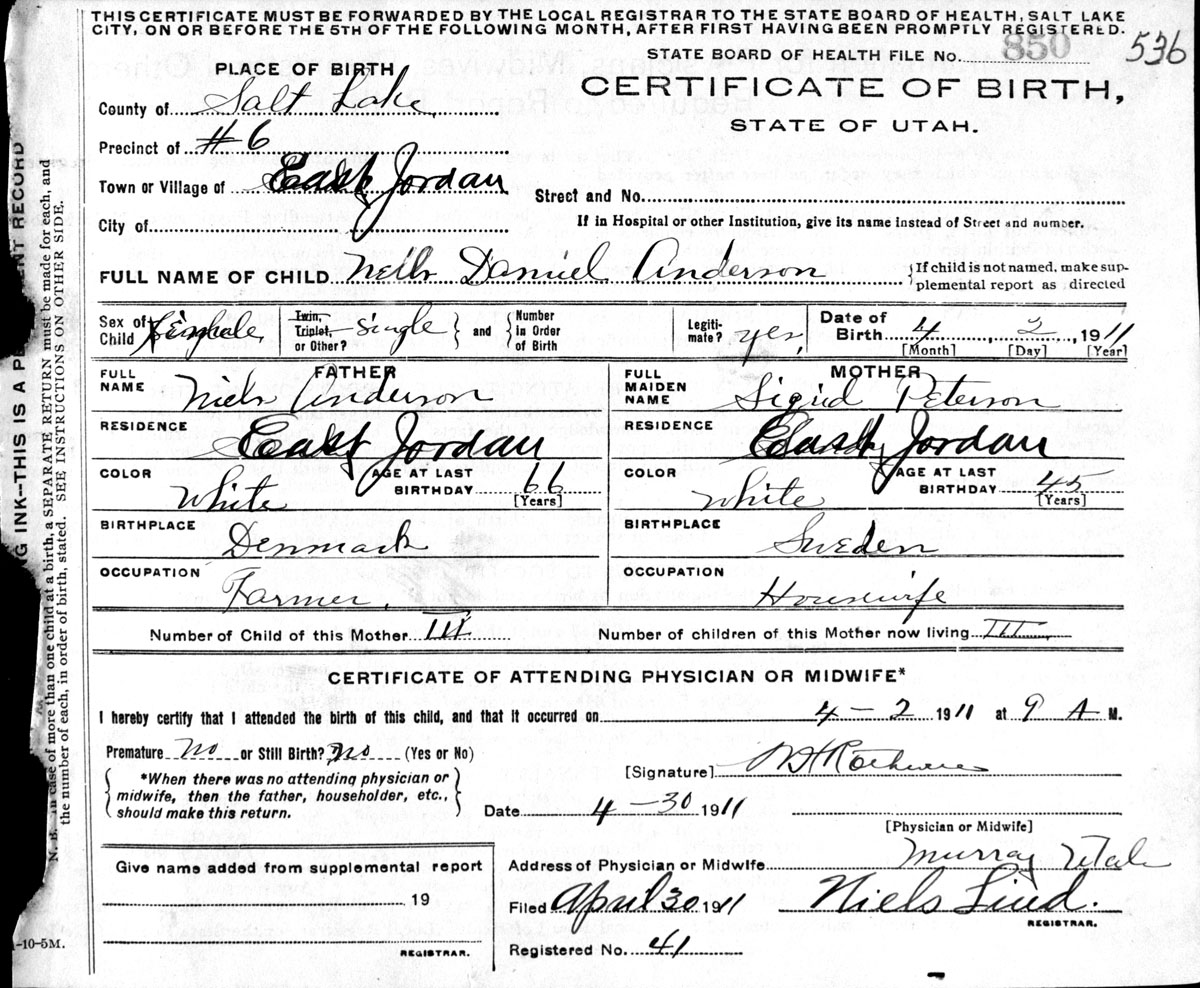 THIS CERTIFICATE MUST BE FORWARDED BY THE LOCAL REGISTRAR TO THE STATE BOARD OF HEALTH, SALT LAKE
CITY, ON OR BEFORE THE 5TH OF THE FOLLOWING MONTH, AFTER FIRST HAVING BEEN PROMPTLY REGISTERED.
STATE BOARD OF HEALTH FILE No. 850 536
PLACE OF BIRTH
CERTIFICATE OF BIRTH,
County of Salt Lake
STATE OF UTAH.
Precinct of #6
Town or Village of East Jordan
Street and No.
City of
If in Hospital or other Institution, give its name instead of Street and number.
FULL NAME OF CHILD Neils Daniel Anderson
{If child is not named, make sup-
plemental report as directed
Sex of Child
Twin, Triplet, or Other? Single } and { Number in Order of Birth
Legiti-mate? yes
Date of Birth 4, 2, 1911
[Month] [Day] [Year]
FATHER
FULL NAME Niels Anderson
RESIDENCE East Jordan
COLOR White
AGE AT LAST BIRTHDAY 66 [Years]
BIRTHPLACE Denmark
OCCUPATION Farmer.
MOTHER
FULL MAIDEN NAME Sigrid Peterson
RESIDENCE East Jordan
COLOR White
AGE AT LAST BIRTHDAY 45 [Years]
BIRTHPLACE Sweden
OCCUPATION Housewife
Number of Child of this Mother III
Number of children of this Mother now living III
CERTIFICATE OF ATTENDING PHYSICIAN OR MIDWIFE*
I hereby certify that I attended the birth of this child, and that it occurred on 4 - 2 1911 at 9 A M.
Premature no or Still Birth? no (Yes or No)
*When there was no attending physician or
midwife, then the father, householder, etc.,
should make this return.
[Signature]
Date 4-30 1911
[Physician or Midwife]
Give name added from supplemental report
19
REGISTRAR.
Address of Physician or Midwife Murray Utah
Filed April 30 1911 Niels Lind.
REGISTRAR.
Registered No. 41
-10-5M.
NG INK-THIS IS A PE ENT RECORD
N. B. In case of more than one child at a birth, a SEPARATE RETURN must be made for each, and
the number of each, in order of birth, stated. SEE INSTRUCTIONS ON OTHER SIDE.